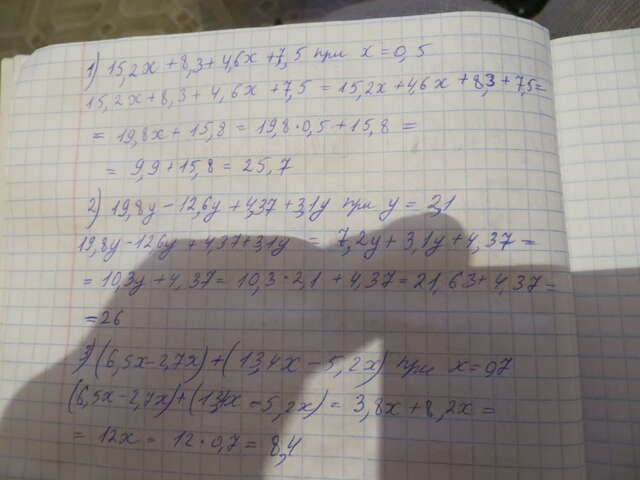 1) 15,2x + 8,3 + 4,6x + 7,5 при x = 0,5
15,2x + 8,3 + 4,6x + 7,5 = 15,2x + 4,6x + 8,3 + 7,5 =
= 19,8x + 15,8 = 19,8 · 0,5 + 15,8 =
= 9,9 + 15,8 = 25,7
2) 19,8y - 12,6y + 4,37 + 3,1y при y = 2,1
19,8y - 12,6y + 4,37 + 3,1y = 7,2y + 3,1y + 4,37 =
= 10,3y + 4,37 = 10,3 · 2,1 + 4,37 = 21,63 + 4,37 =
= 26
3) (6,5x - 2,7x) + (13,4x - 5,2x) при x = 0,7
(6,5x - 2,7x) + (13,4x - 5,2x) = 3,8x + 8,2x =
= 12x = 12 · 0,7 = 8,4